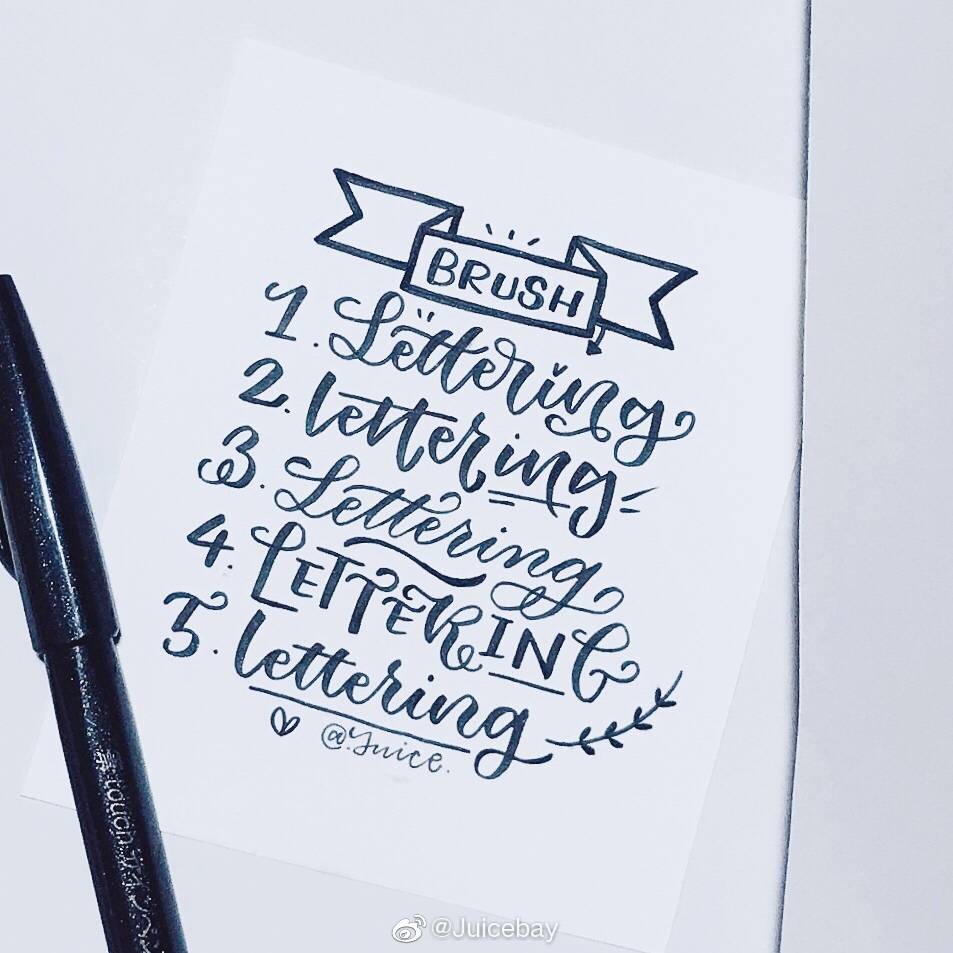 BRUSH
1. Lettering
2. lettering
3. Lettering
4. LETTERING
5. lettering
@Juice.
touch
@Juicebay